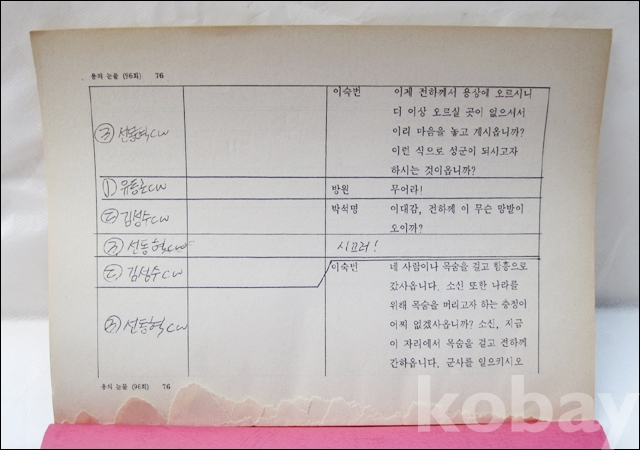 용의 눈물 (96회) 76
이숙번 이제 전하께서 용상에 오르시니
더 이상 오르실 곳이 없으셔서
이리 마음을 놓고 계시옵니까?
이런 식으로 성군이 되시고자
하시는 것이옵니까?
선동혁 CW
① 유동근 CW
방원 무어라!
김성수 CW
박석명 이대감, 전하께 이 무슨 망발이
오이까?
선동혁 CW
시끄러!
김성수 CW
이숙번 네 사람이나 목숨을 걸고 함흥으로
갔사옵니다. 소신 또한 나라를
위해 목숨을 버리고자 하는 충정이
어찌 없겠사옵니까? 소신, 지금
이 자리에서 목숨을 걸고 전하께
간하옵니다. 군사를 일으키시오
선동혁 CW
용의 눈물 (96회) 76
kobay